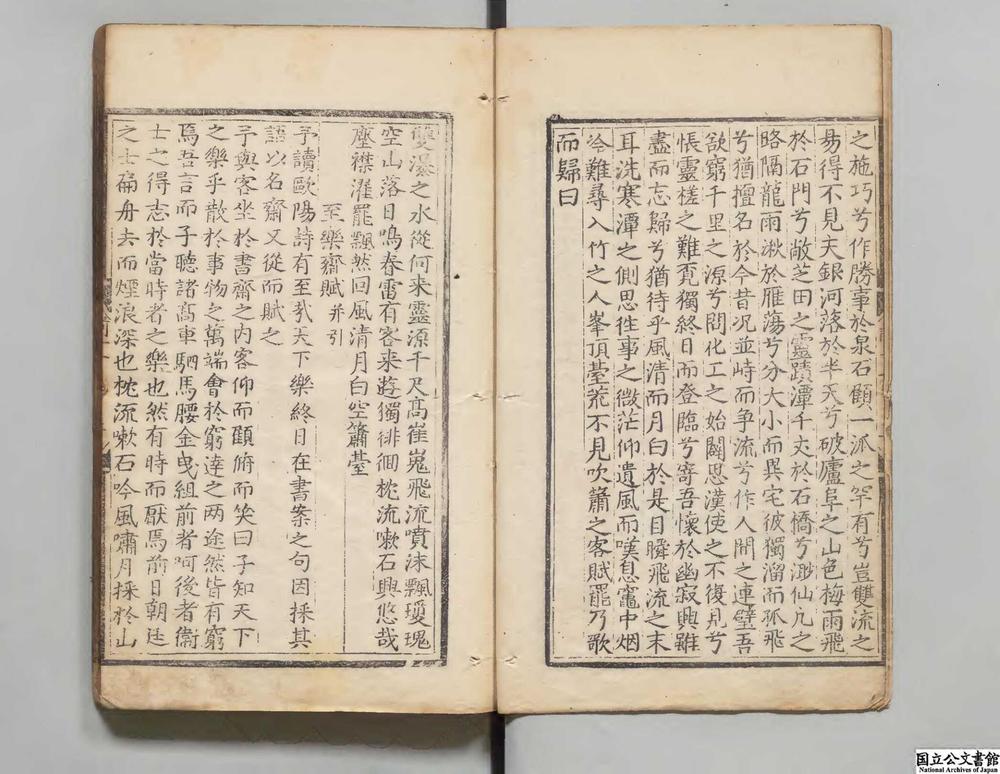 之施巧兮作勝事於泉石顧一派之罕有兮豈雙流之
易得不見夫銀河落於半天兮破廬阜之山色梅雨飛
於石門兮敞芝田之靈蹟潭千丈於石橋兮渺仙凡之
路隔龍雨湫於雁蕩兮分大小而異宅彼獨溜而孤飛
兮猶擅名於今昔况並峙而爭流兮作人間之連璧吾
欲窮千里之源兮問化工之始闢思漢使之不復見兮
悵靈槎之難覔獨終日而登臨兮寄吾懷於幽寂興雖
盡而忘歸兮猶待乎風清而月白於是目瞬飛流之末
耳洗寒潭之側思徃事之微茫仰遺風而嘆息竈中烟
冷難尋入竹之人峯頂䑓荒不見吹簫之客賦罷乃歌
而歸曰
雙瀑之水從何来靈源千尺髙崔嵬飛流噴沫飄瓊瑰
空山落日鳴春雷有客来遊獨徘徊枕流嗽石興悠哉
塵襟濯罷飄然回風清月白空簫䑓
至樂齋賦 并引
予讀歐陽詩有至哉天下樂終日在書案之句因採其
語以名齋又從而賦之
予與客坐於書齋之内客仰而頤俯而笑曰子知天下
之樂乎散於事物之萬端會於窮達之两途然皆有窮
焉吾言而子聽諸髙車駟馬腰金曳組前者呵後者衛
士之得志於當時者之樂也然有時而厭焉前日朝廷
之士扁舟去而煙浪深也枕流嗽石吟風嘯月採於山
国立公文書館
National Archives of Japan